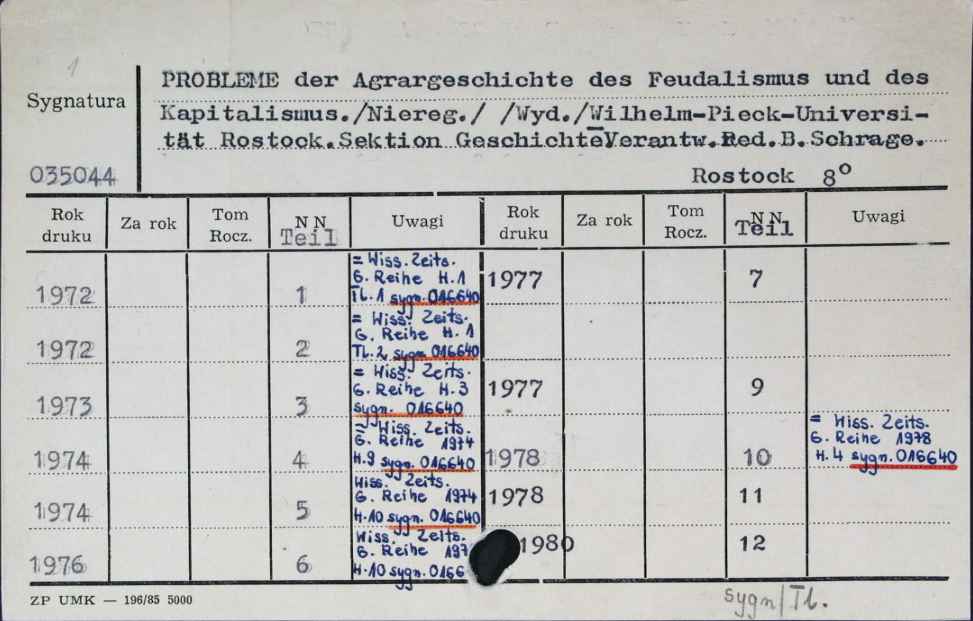 1
PROBLEME der Agrargeschichte des Feudalismus und des
Sygnatura
Kapitalismus./Niereg./ /Wyd./Wilhelm-Pieck-Universi-
tät Rostock.Sektion Geschichte Verantw.Red.B.Schrage.
035044
Rostock 8°
Rok druku Za rok Tom Rocz. NN Teil Uwagi Rok druku Za rok Tom Rocz. NN Teil Uwagi
= Wiss. Zeits.
G. Reihe H.1
1972 1 Tl.1 sygn. 016640 1977 7
= Wiss. Zeits.
G. Reihe H.1
1972 2 Tl.2 sygn 016640
= Wiss. Zeits.
G. Reihe H.3
1973 3 sygn. 016640 1977 9
= Wiss. Zeits. = Wiss. Zeits.
G. Reihe 1974 G. Reihe 1978
1974 4 H.9 sygn. 016640 1978 10 H.4 sygn. 016640
Wiss. Zeits.
G. Reihe 1974
1974 5 H.10 sygn. 016640 1978 11
Wiss. Zeits.
G. Reihe 197
1976 6 H.10 sygn. 0166 1980 12
ZP UMK — 196/85 5000
sygn/Tl.